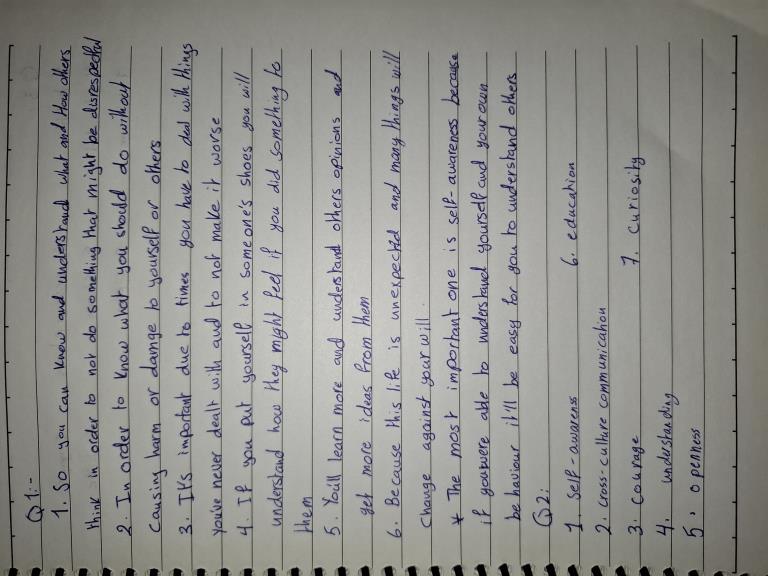 Q1:-
1. So you can know and understand what and How others
think in order to not do something that might be disrespectful
2. In order to know what you should do without
causing harm or damge to yourself or others
3. It's important due to times you have to deal with things
you've never dealt with and to not make it worse
4. If you put yourself in someone's shoes you will
understand how they might feel if you did something to
them
5. You'll learn more and understand others opinions and
get more ideas from them
6. Because this life is unexpected and many things will
change against your will.
* The most important one is self-awareness because
if you were able to understand yourself and your own
behaviour it'll be easy for you to understand others
Q2:
1. Self-awarenss 6. education
2. cross-culture communication
3. Courage 7. Curiosity
4. understanding
5. openness